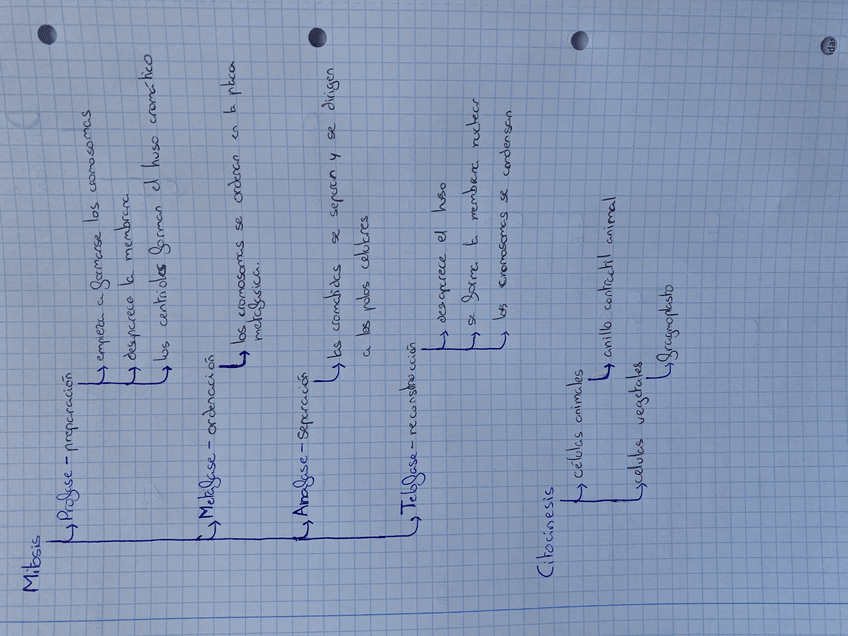 Mitosis
Profase - preparación
empieza a formarse los cromosomas
desaparece la membrana
los centriolos forman el huso cromático
Metafase - ordenación
los cromosomas se ordenan en la placa
metafásica.
Anafase - separación
las cromatidas se separan y se dirigen
a los polos celulares
Telofase - reconstrucción
desaparece el huso
se forma la membrana nuclear
los cromosomas se condensan
Citocinesis
células animales
anillo contractil animal
celulas vegetales
fragmoplasto